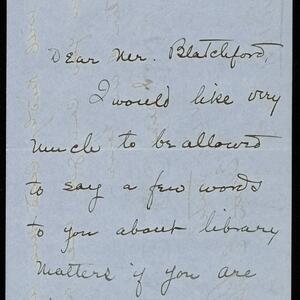 Dear Mr. Blatchford,
I would like very
much to be allowed
to say a few words
to you about library
matters if you are